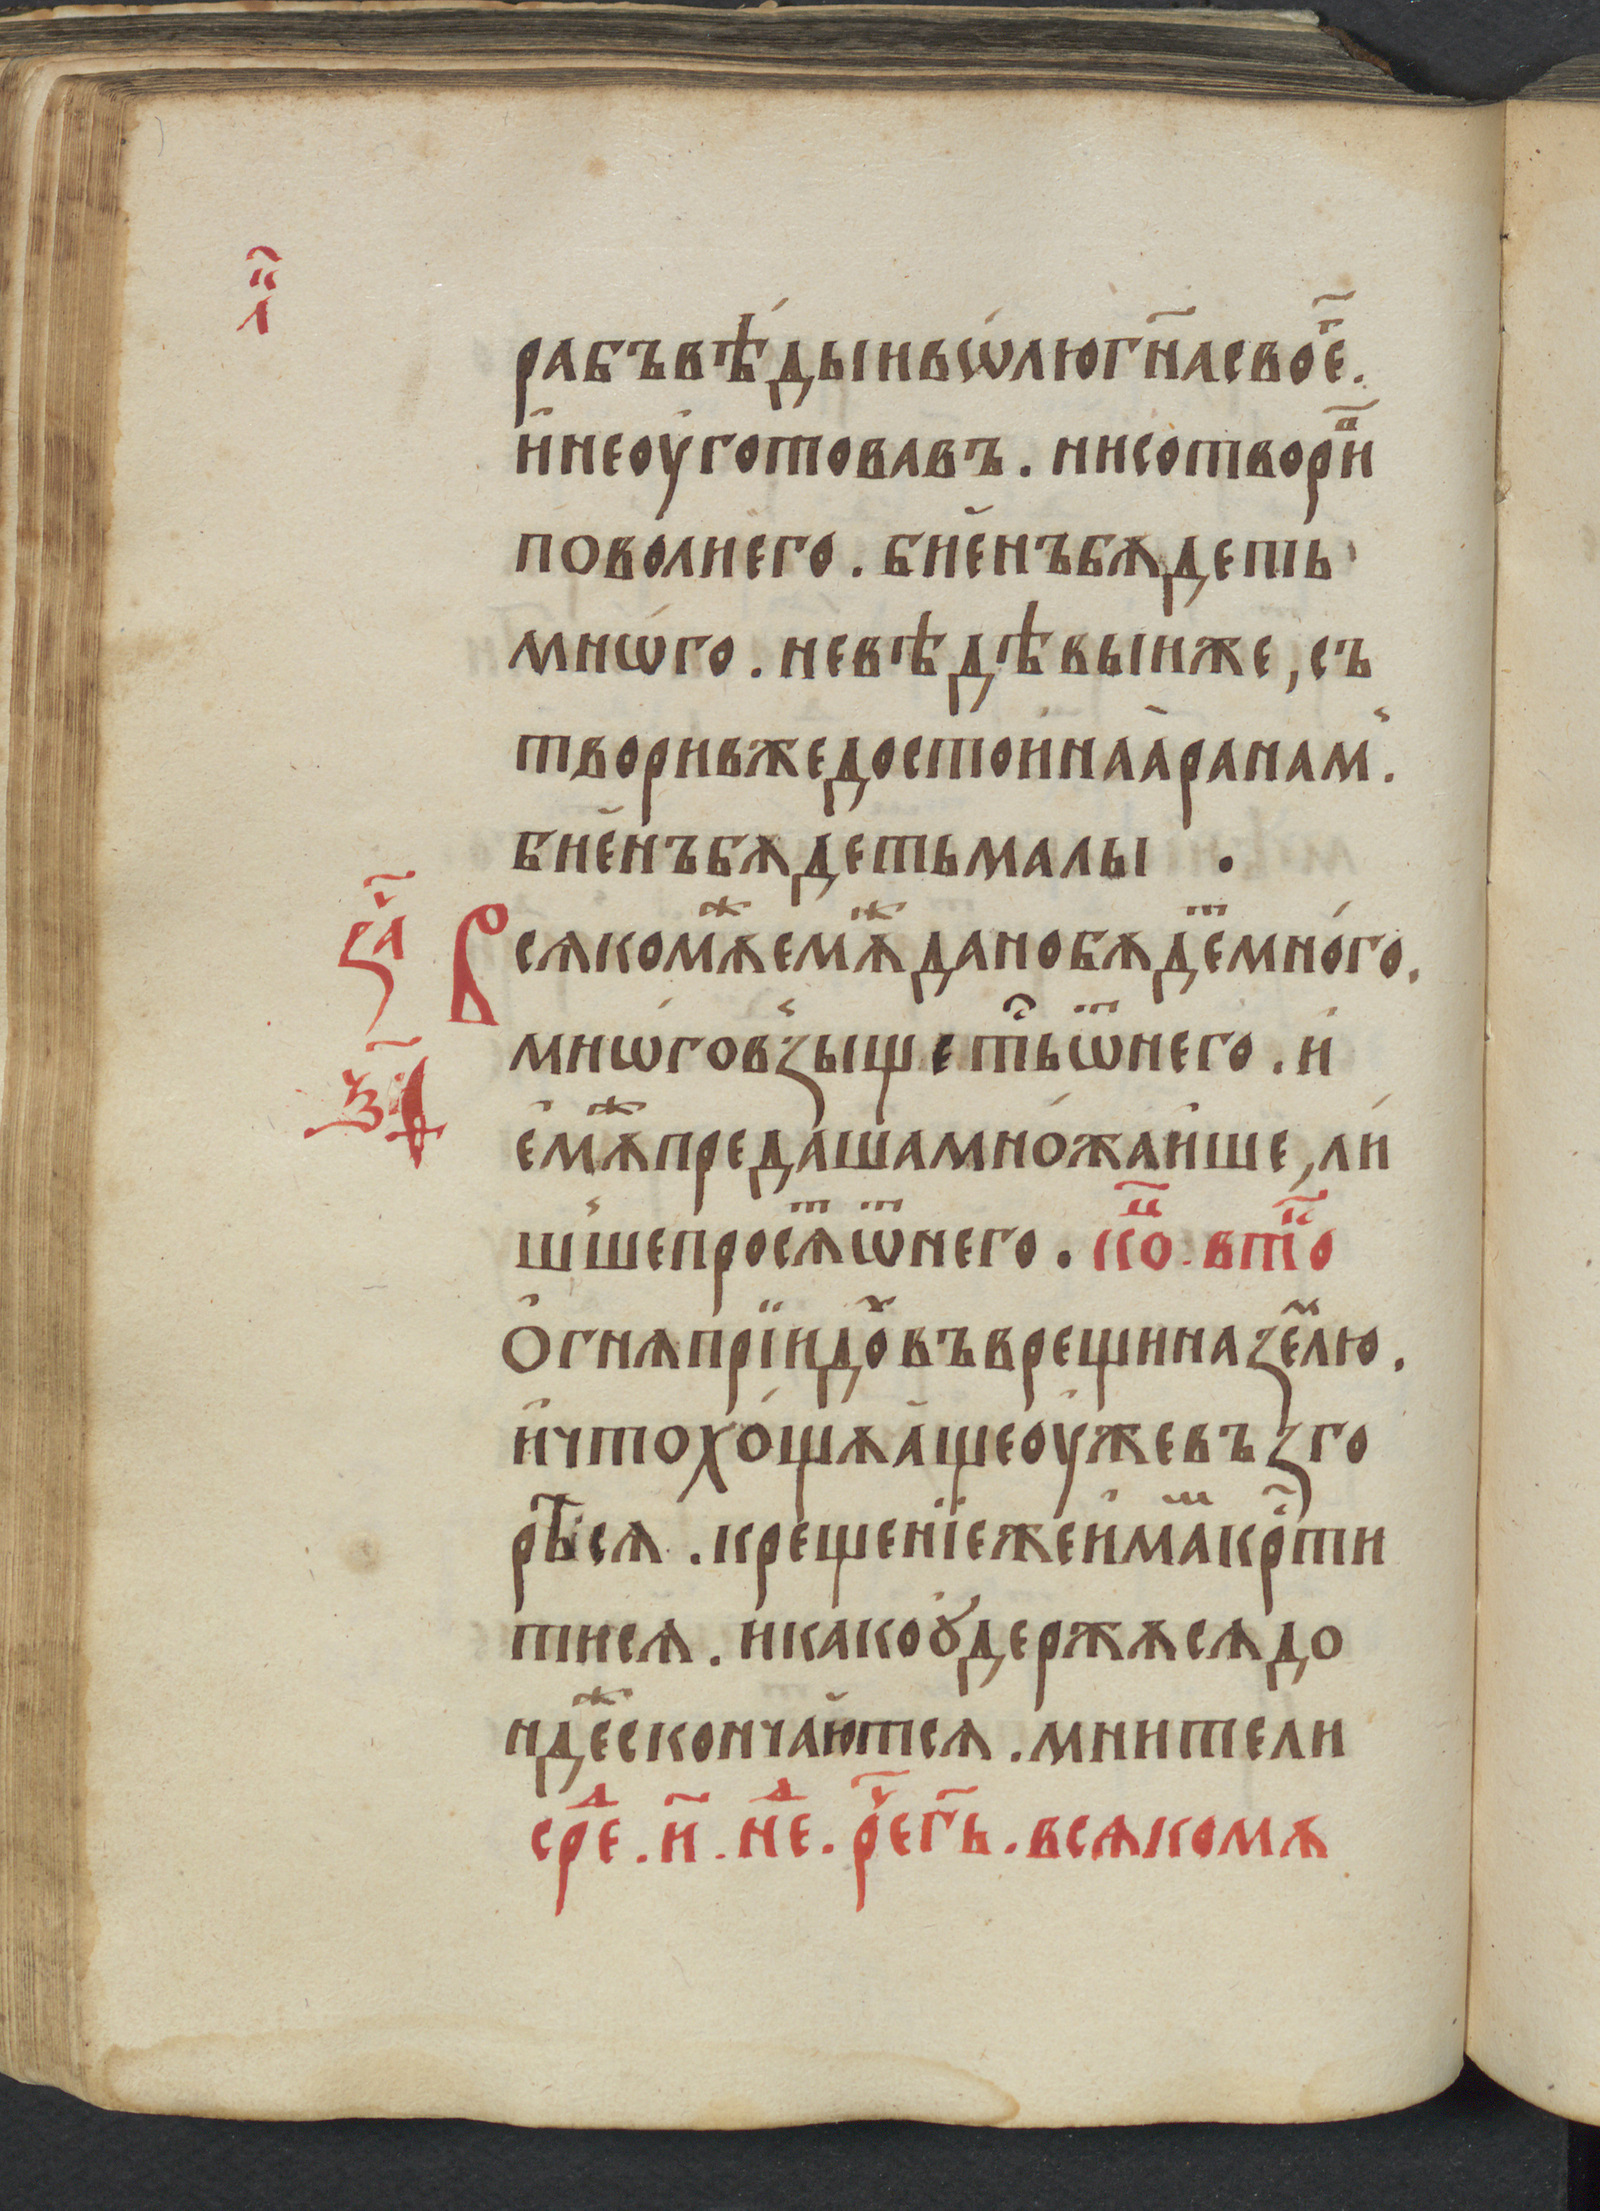 рабъвѣ́дыивѡ́люгн҃асвоеⷢ҇.
и҆неоуготовавъ. нисотвориⷡ҇
поволиего. бїе́нъбѫдеть
мнѡ́го. невѣдѣвыиже, съ
творивжедостои́наа҆ранам̾.
бие́нъбѫдетьмалы .
Всѧкомѫⷤемѫⷤданобѫдеⷮмно́го.
мнѡ́гов̾зыщетьѿнего. и҆
е҆мѫⷤпредашамно́жаи҆ше, ли́
ш̾шепросѧⷮѿнего. коⷰ҇. втоⷬ҇
О҆гнѧпрїидоⷯвъврещиназеⷨлю.
и҆чтохо́щѧа҆щеоу҆жевъзго
рѣсѧ. крещенїежеи҆маⷨкрⷭ҇ти
тисѧ. икакоꙋ҆держѫсѧдо
ндеⷤскончаю҆тсѧ. мнители
среⷣ. и҃. неⷣ. рⷱ҇егь. всѧкомѫ